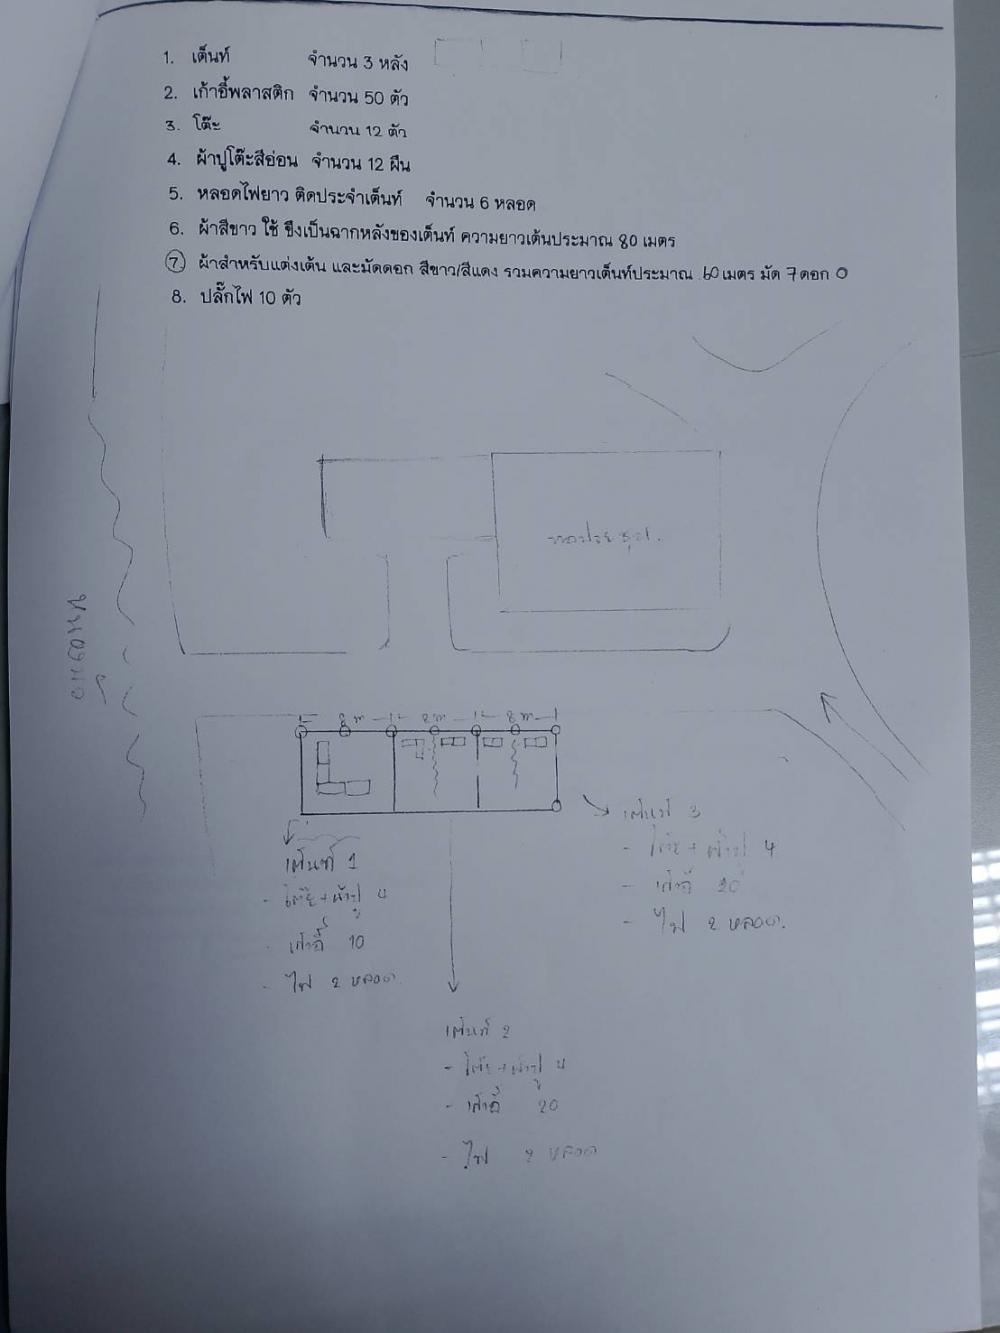 1. เต็นท์ จำนวน 3 หลัง
2. เก้าอี้พลาสติก จำนวน 50 ตัว
3. โต๊ะ จำนวน 12 ตัว
4. ผ้าปูโต๊ะสีอ่อน จำนวน 12 ผืน
5. หลอดไฟยาว ติดประจำเต็นท์ จำนวน 6 หลอด
6. ผ้าสีขาว ใช้ ขึงเป็นฉากหลังของเต็นท์ ความยาวเต้นประมาณ 80 เมตร
7. ผ้าสำหรับแต่งเต้น และมัดดอก สีขาว/สีแดง รวมความยาวเต็นท์ประมาณ 60 เมตร มัด 7 ดอก
8. ปลั๊กไฟ 10 ตัว
8 m 8 m 8 m
เต็นท์ 1
- โต๊ะ+ผ้าปู 4
- เก้าอี้ 10
- ไฟ 2 หลอด
เต็นท์ 3
- โต๊ะ+ผ้าปู 4
- เก้าอี้ 20
- ไฟ 2 หลอด.
เต็นท์ 2
- โต๊ะ+ผ้าปู 4
- เก้าอี้ 20
- ไฟ 2 หลอด